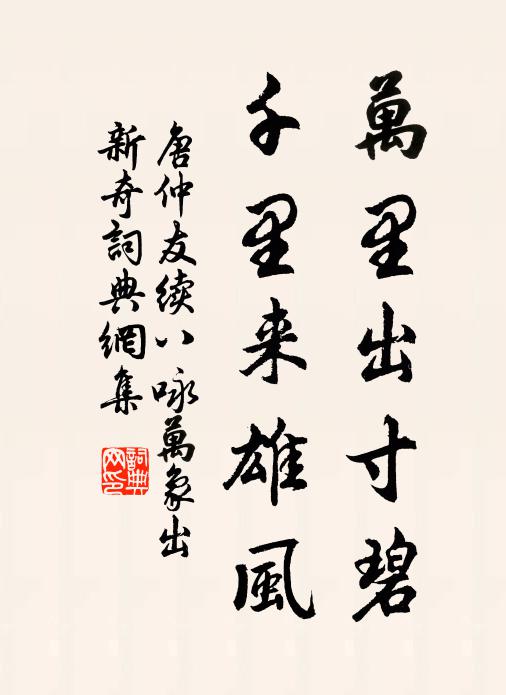 萬里出寸碧
千里来雄風
唐仲友續八咏萬象出
新奇詞典網集
詞典网印